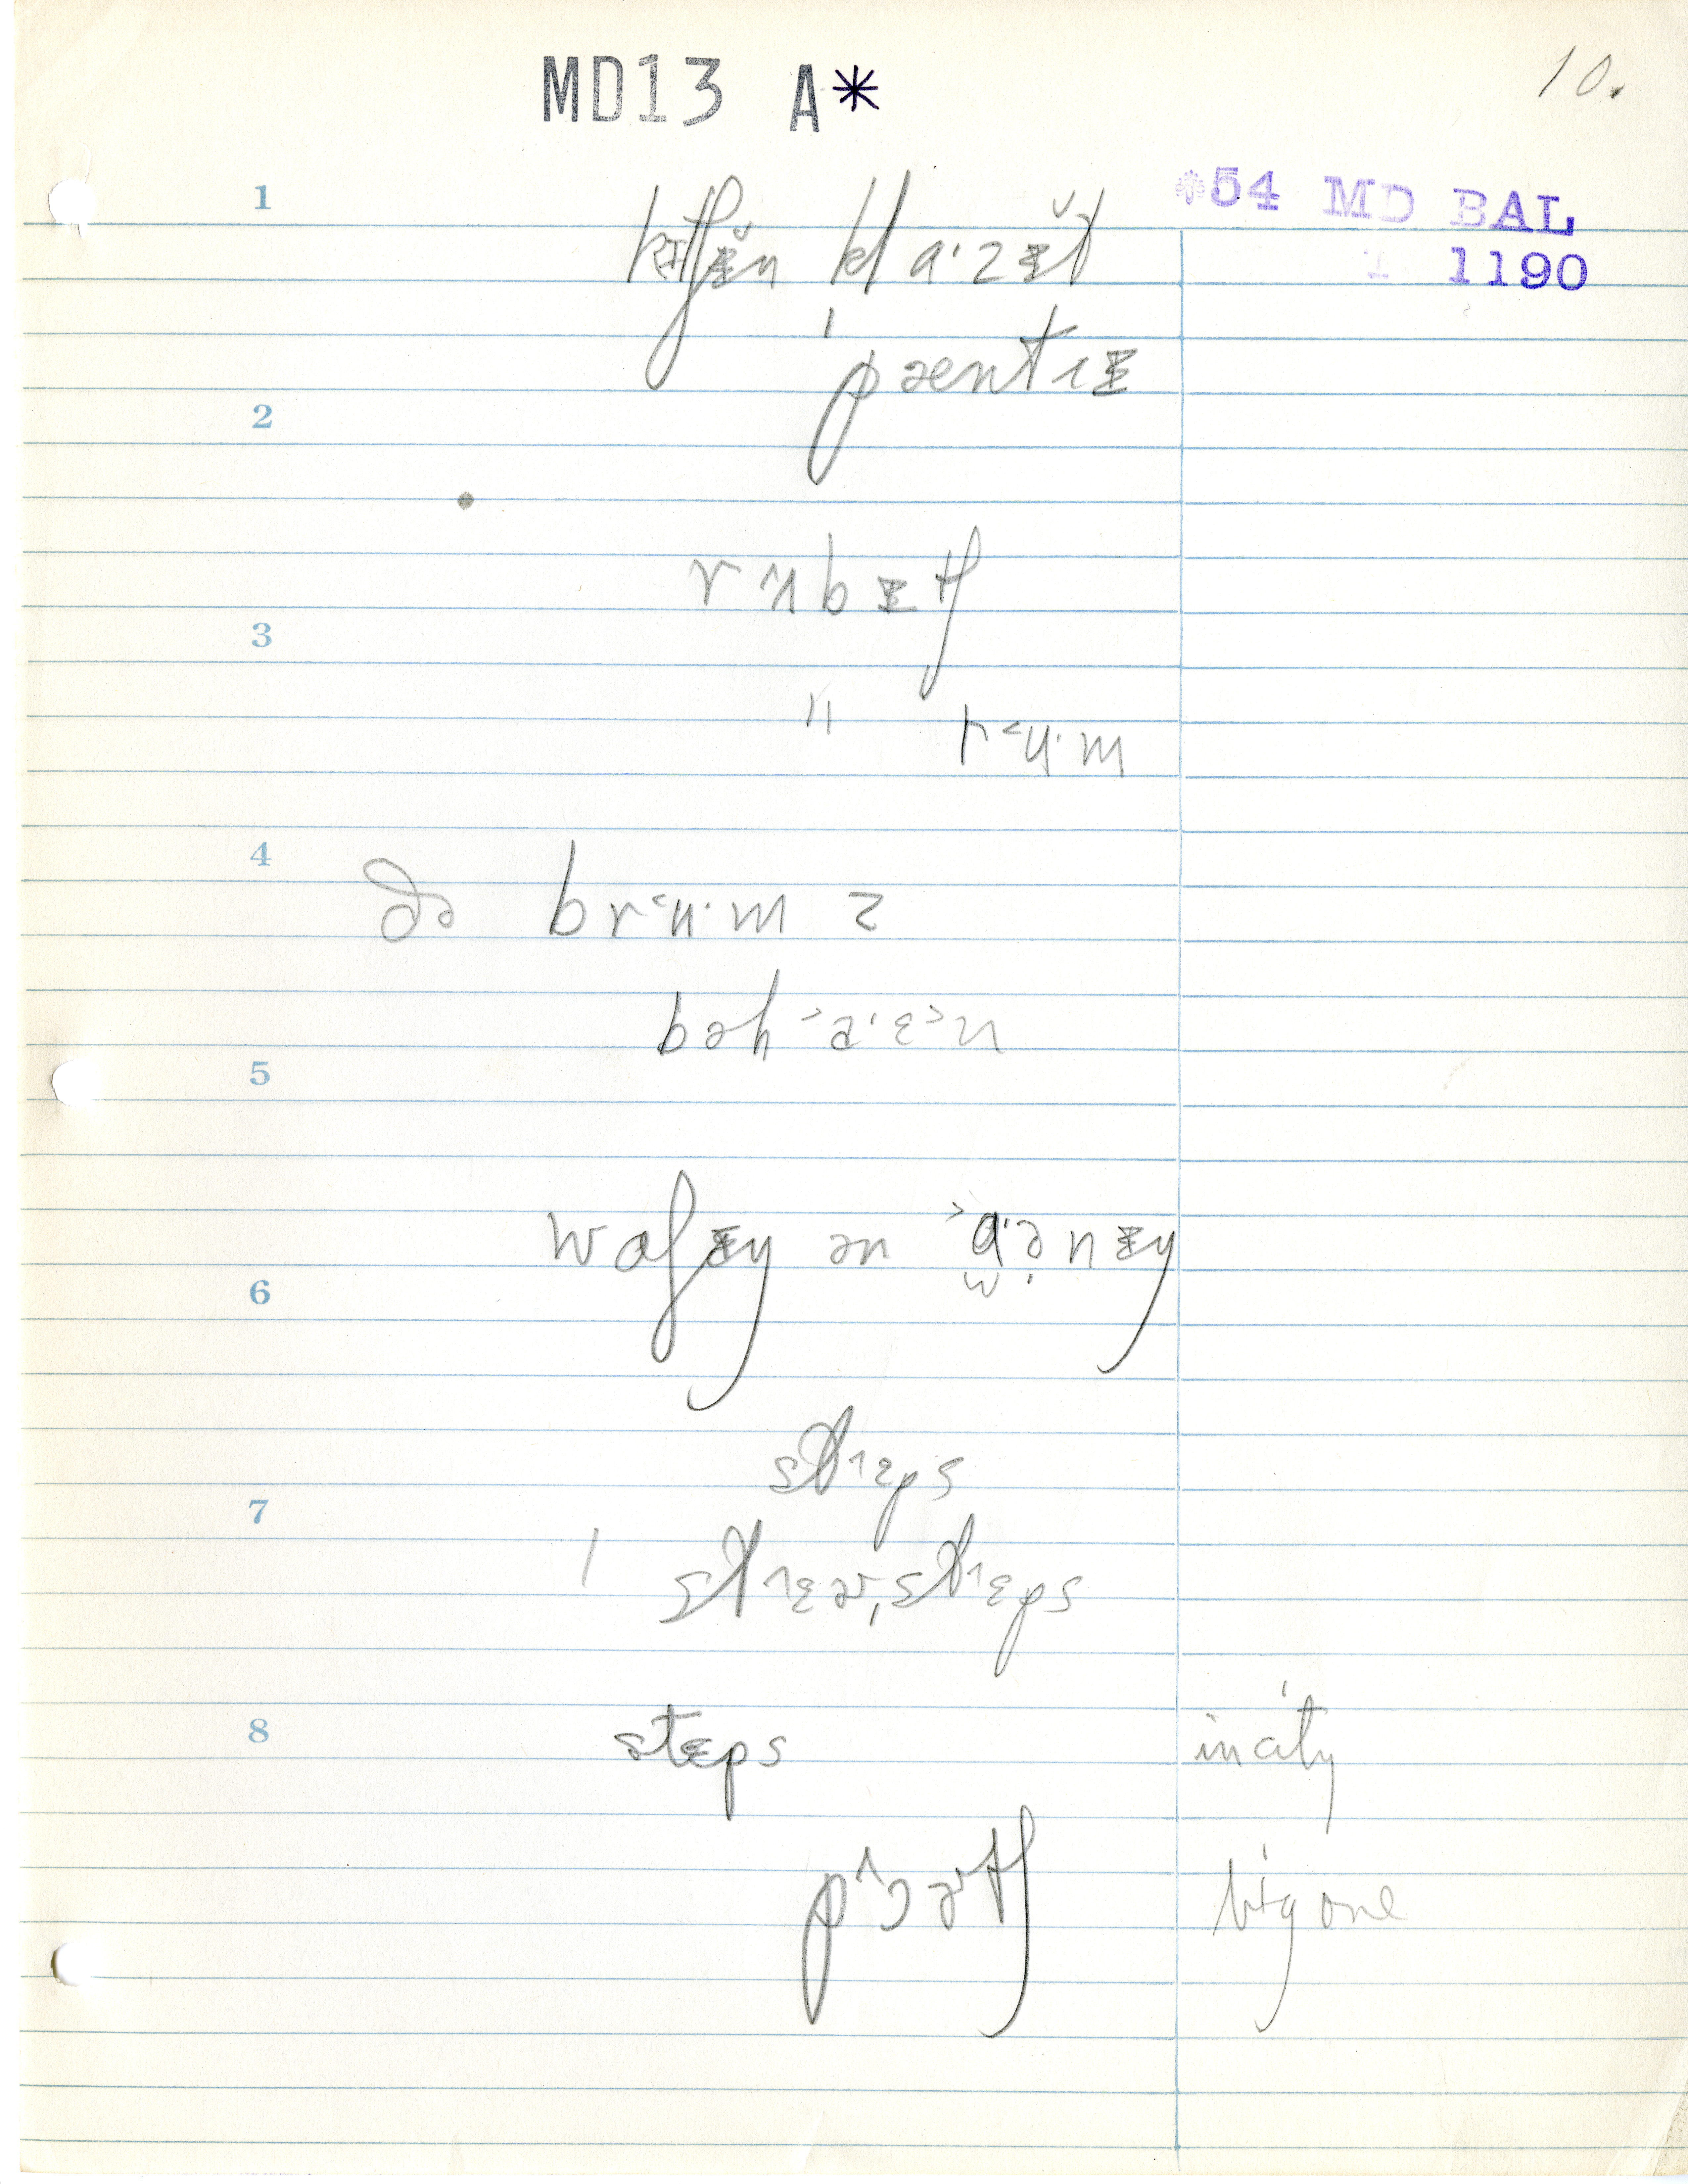 MD13 A* 10.
*54 MD BAL
1 1190
1
kɪtʃɪ̆n klɑ·zɪ̆t
ˈpæntɪɪ
2
rʌbɪtʃ
3
" r˂ʉ·m
4
ðə br˂ʉ·m z
bəh˃a·ɛ˃n
5
wɑʃɪy ən ˃ɑ·ənɪy
6
stɪɛps
7
/ stɪɛɚ,stɪɛps
8 steps in city
p^ɔɚtʃ big one